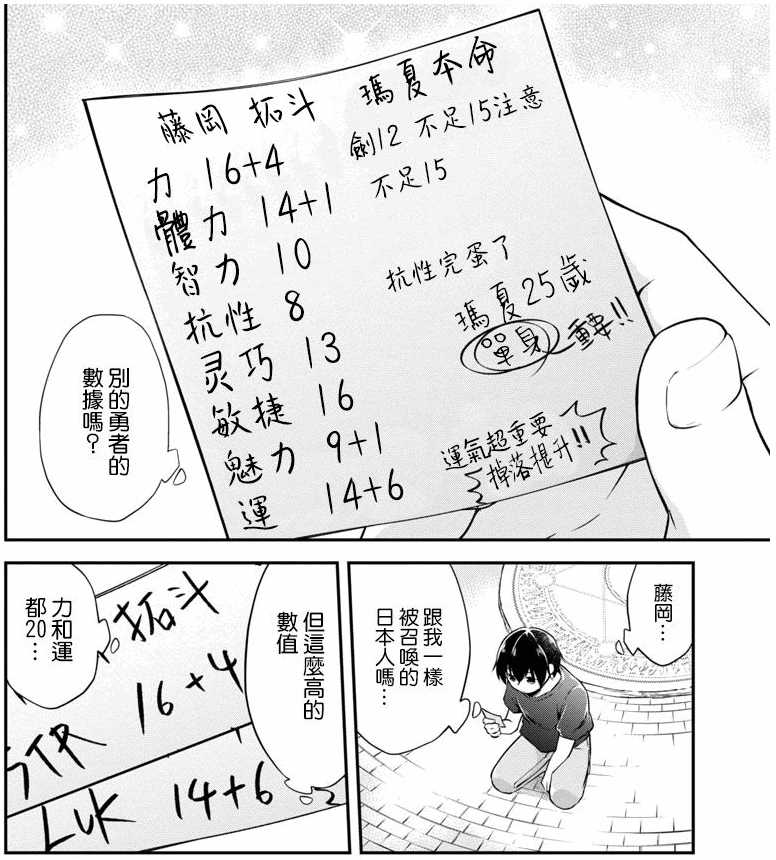 藤岡 拓斗 瑪夏本命
力 16+4 劍12 不足15注意
體力 14+1 不足15
智力 10
抗性 8 抗性完蛋了
灵巧 13 瑪夏25歲
單身 重要!!
敏捷 16
魅力 9+1
運 14+6
運氣超重要
掉落提升!!
別的勇者的
數據嗎？
藤岡…
跟我一樣
被召喚的
日本人嗎…
但這麼高的
數值
力和運
都20…
拓斗
STR 16+4
LUK 14+6